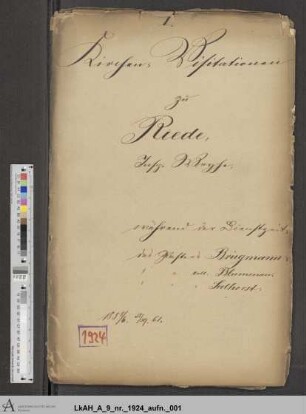 1.
Kirchen Visitationen
zu
Riede,
Insp. Weyhe,
während der Dienstzeit
des Past. Brügmann
" " Blumenau
1924
LkAH_A_9_nr._1924_aufn._001